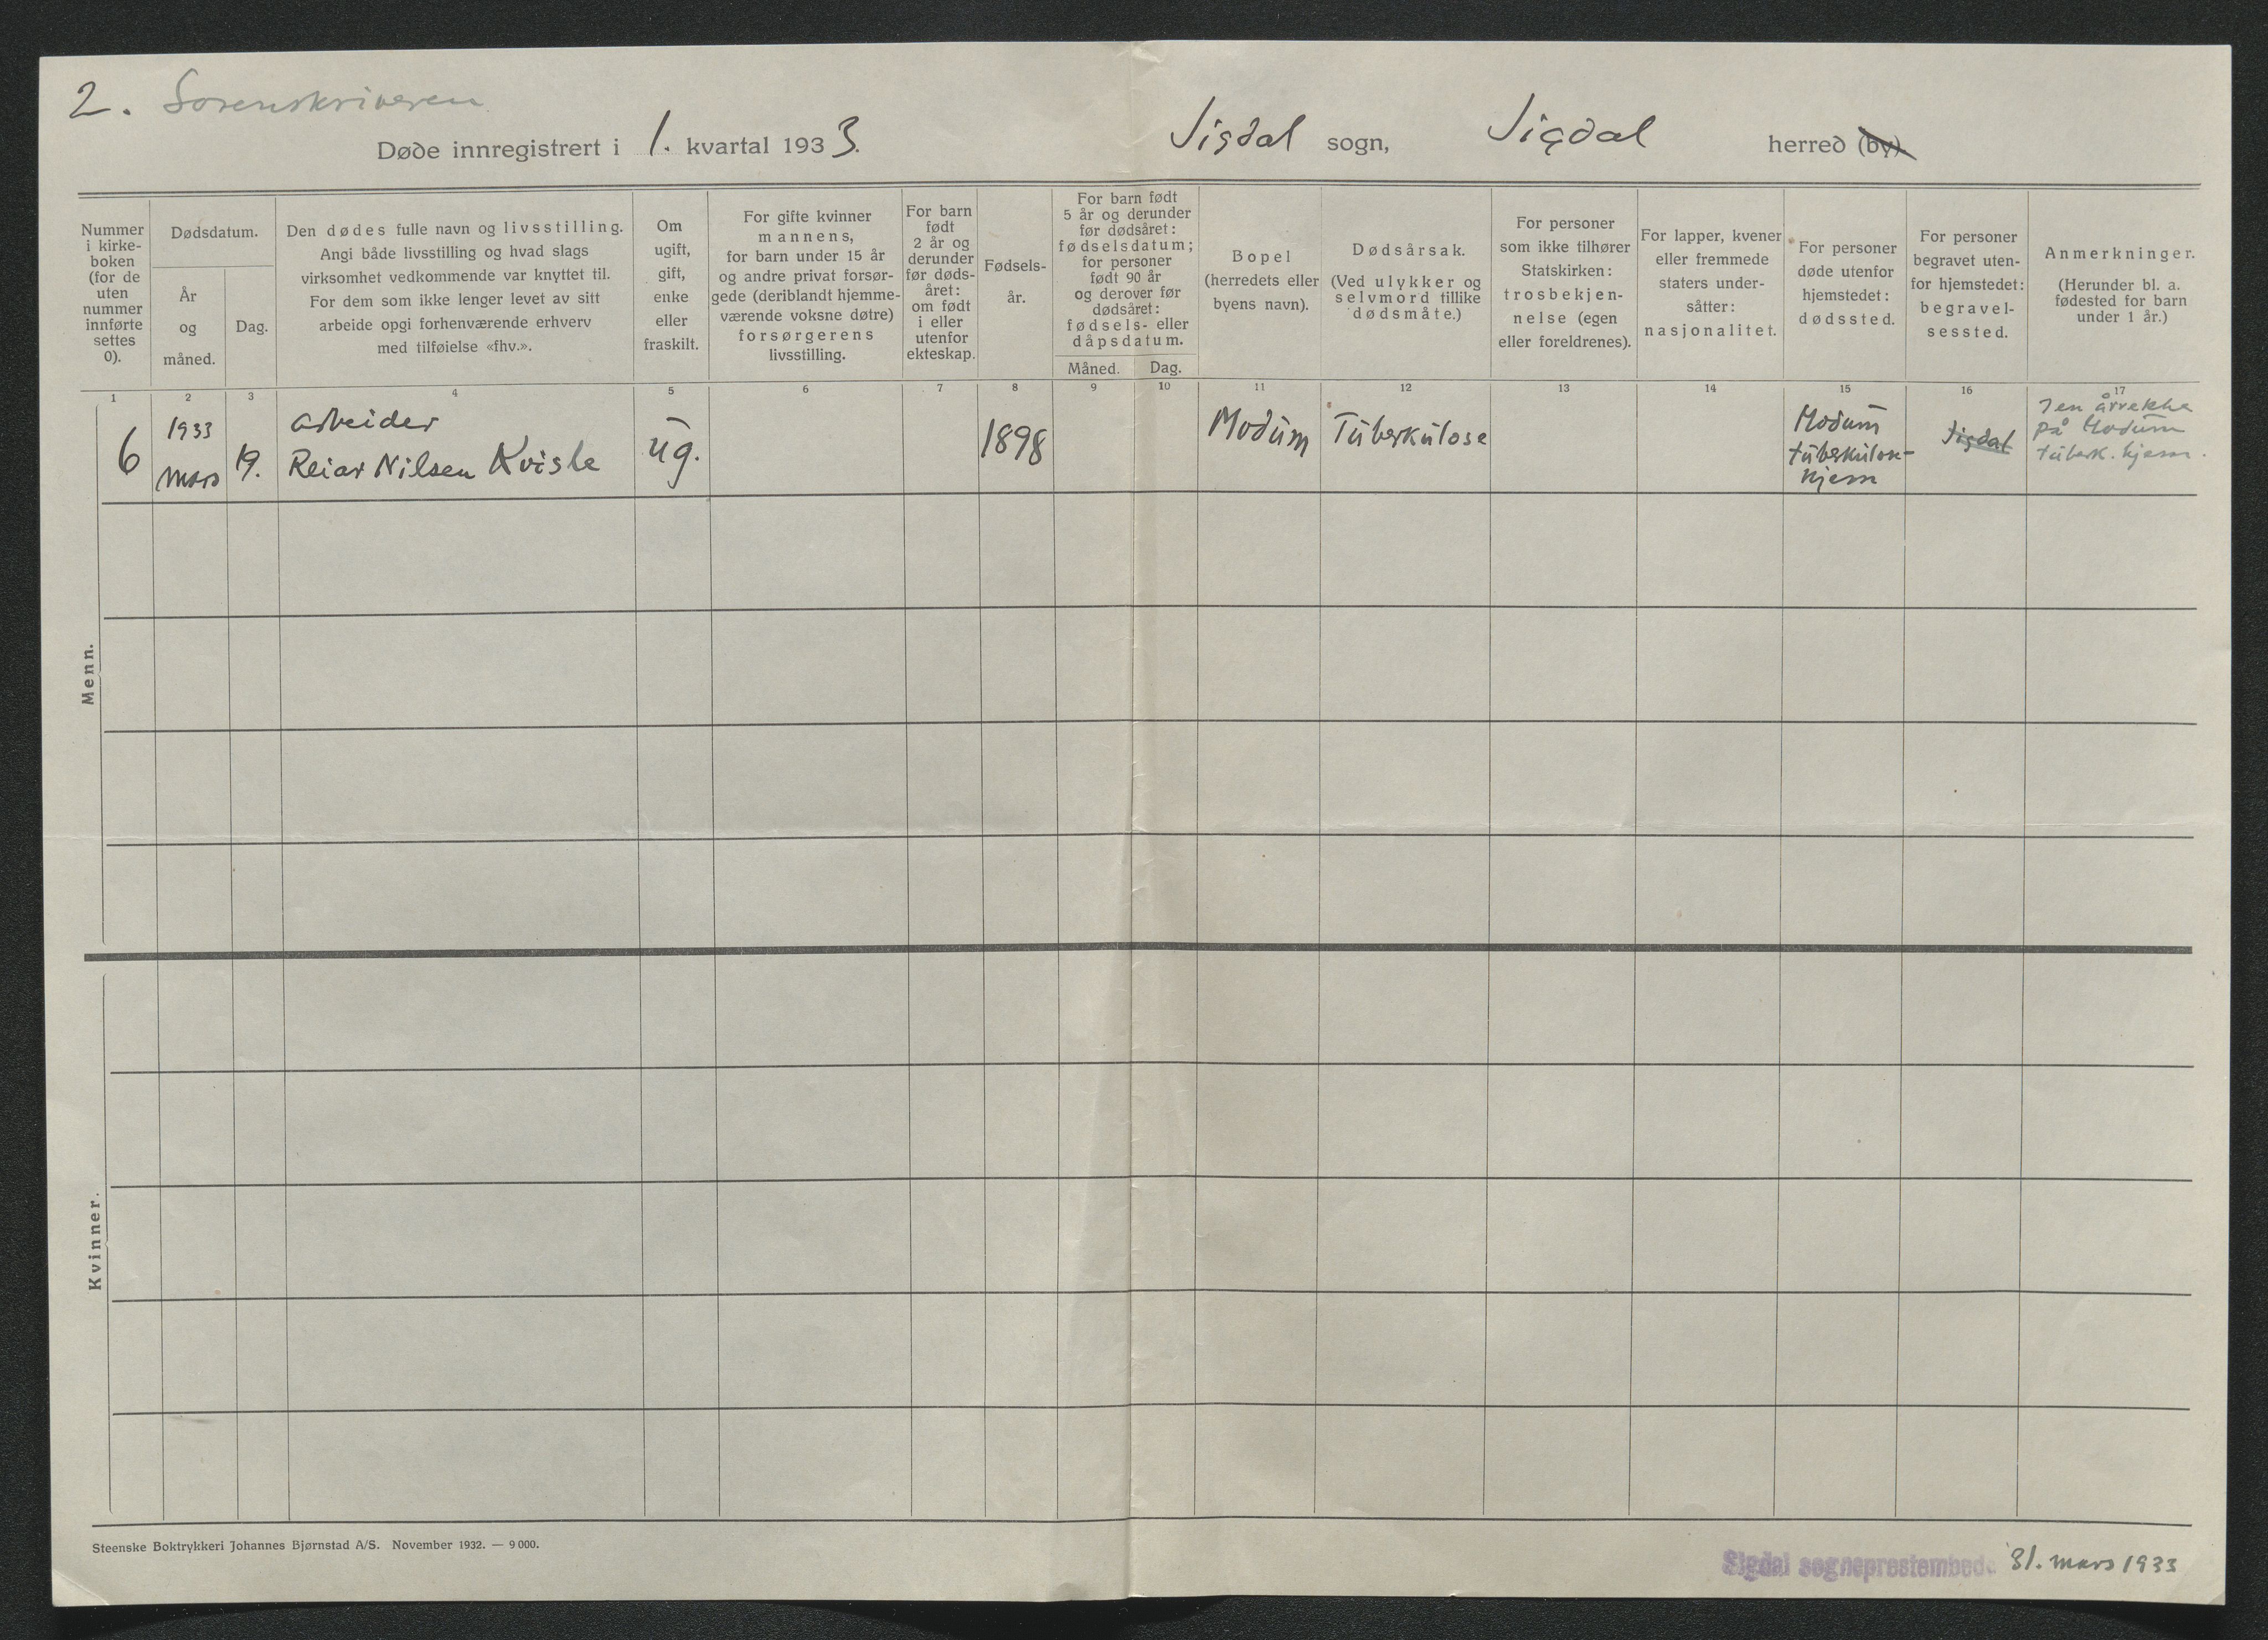 2. Sorenskriveren
Døde innregistrert i 1. kvartal 1933. Sigdal sogn, Sigdal herred (by).
Nummer
i kirke-
boken
(for de
uten
nummer
innførte
settes
0).
Dødsdatum.
År
og
måned.
Dag.
Den dødes fulle navn og livsstilling.
Angi både livsstilling og hvad slags
virksomhet vedkommende var knyttet til.
For dem som ikke lenger levet av sitt
arbeide opgi forhenværende erhverv
med tilføielse «fhv.».
Om
ugift,
gift,
enke
eller
fraskilt.
For gifte kvinner
mannens,
for barn under 15 år
og andre privat forsør-
gede (deriblandt hjemme-
værende voksne døtre)
forsørgerens
livsstilling.
For barn
født
2 år og
derunder
før døds-
året:
om født
i eller
utenfor
ekteskap.
Fødsels-
år.
For barn født
5 år og derunder
før dødsåret:
fødselsdatum;
for personer
født 90 år
og derover før
dødsåret:
fødsels- eller
dåpsdatum.
Måned. Dag.
Bopel
(herredets eller
byens navn).
Dødsårsak.
(Ved ulykker og
selvmord tillike
dødsmåte.)
For personer
som ikke tilhører
Statskirken:
trosbekjen-
nelse (egen
eller foreldrenes).
For lapper, kvener
eller fremmede
staters under-
såtter:
nasjonalitet.
For personer
døde utenfor
hjemstedet:
dødssted.
For personer
begravet uten-
for hjemstedet:
begravel-
sessted.
Anmerkninger.
(Herunder bl. a.
fødested for barn
under 1 år.)
1 2 3 4 5 6 7 8 9 10 11 12 13 14 15 16 17
Menn.
6
1933
mars
19.
arbeider
Reiar Nilsen Kvisle
ug.
1898
Modum
Tuberkulose
Modum
tuberkulose-
hjem
Sigdal
I en årrekke
på Modum
tuberk. hjem.
Kvinner.
Steenske Boktrykkeri Johannes Bjørnstad A/S. November 1932. — 9 000.
Sigdal sogneprestembede 31. mars 1933